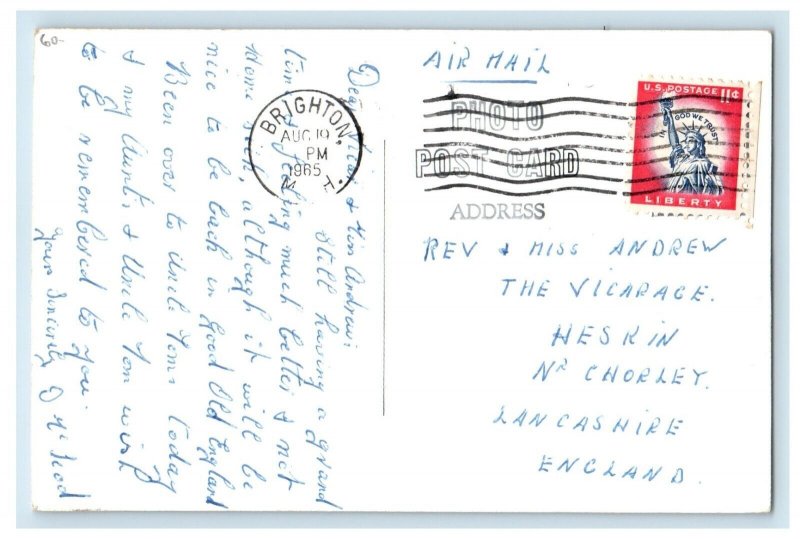 60-
Dear & Miss Andrew:
Still having a grand
time & feeling much better & not
Home sick, although it will be
nice to be back in good old England
Been over to Uncle Toms today
& my Auntie & Uncle Tom wish
to be remembered to you.
Your Sincerely
AIR MAIL
BRIGHTON,
AUG 19
PM
1965
PHOTO
POST CARD
ADDRESS
U.S. POSTAGE 11¢
IN GOD WE TRUST
LIBERTY
REV & MISS ANDREW
THE VICARAGE.
HESKIN
NR CHORLEY.
LANCASHIRE
ENGLAND.